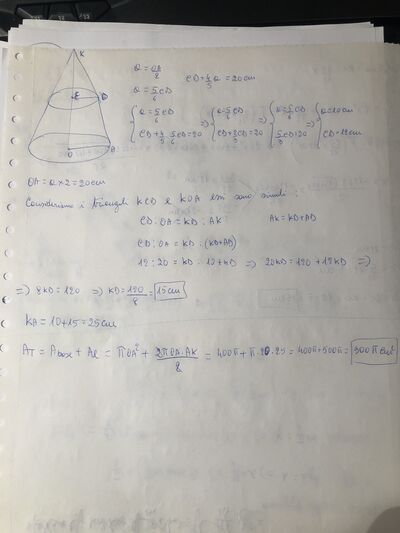 K
C
D
O
A
a = OA/2
a = 5/6 CD
CD + 4/5 a = 20cm
{ a = 5/6 CD ; CD + 4/5 · 5/6 CD = 20 => { a = 5/6 CD ; CD + 2/3 CD = 20 => { a = 5/6 CD ; 5/3 CD = 20 => { a = 10cm ; CD = 12cm
OA = a × 2 = 20cm
Consideriamo i triangoli KCD e KOA essi sono simili :
CD : OA = KD : AK
AK = KD + AD
CD : OA = KD : (KD+AD)
12 : 20 = KD : 10 + KD => 20KD = 120 + 12KD =>
=> 8KD = 120 => KD = 120/8 = 15cm
KA = 10 + 15 = 25cm
AT = Abase + Al = πOA² + 2πOA·AK/2 = 400π + π·20·25 = 400π + 500π = 900πcm²